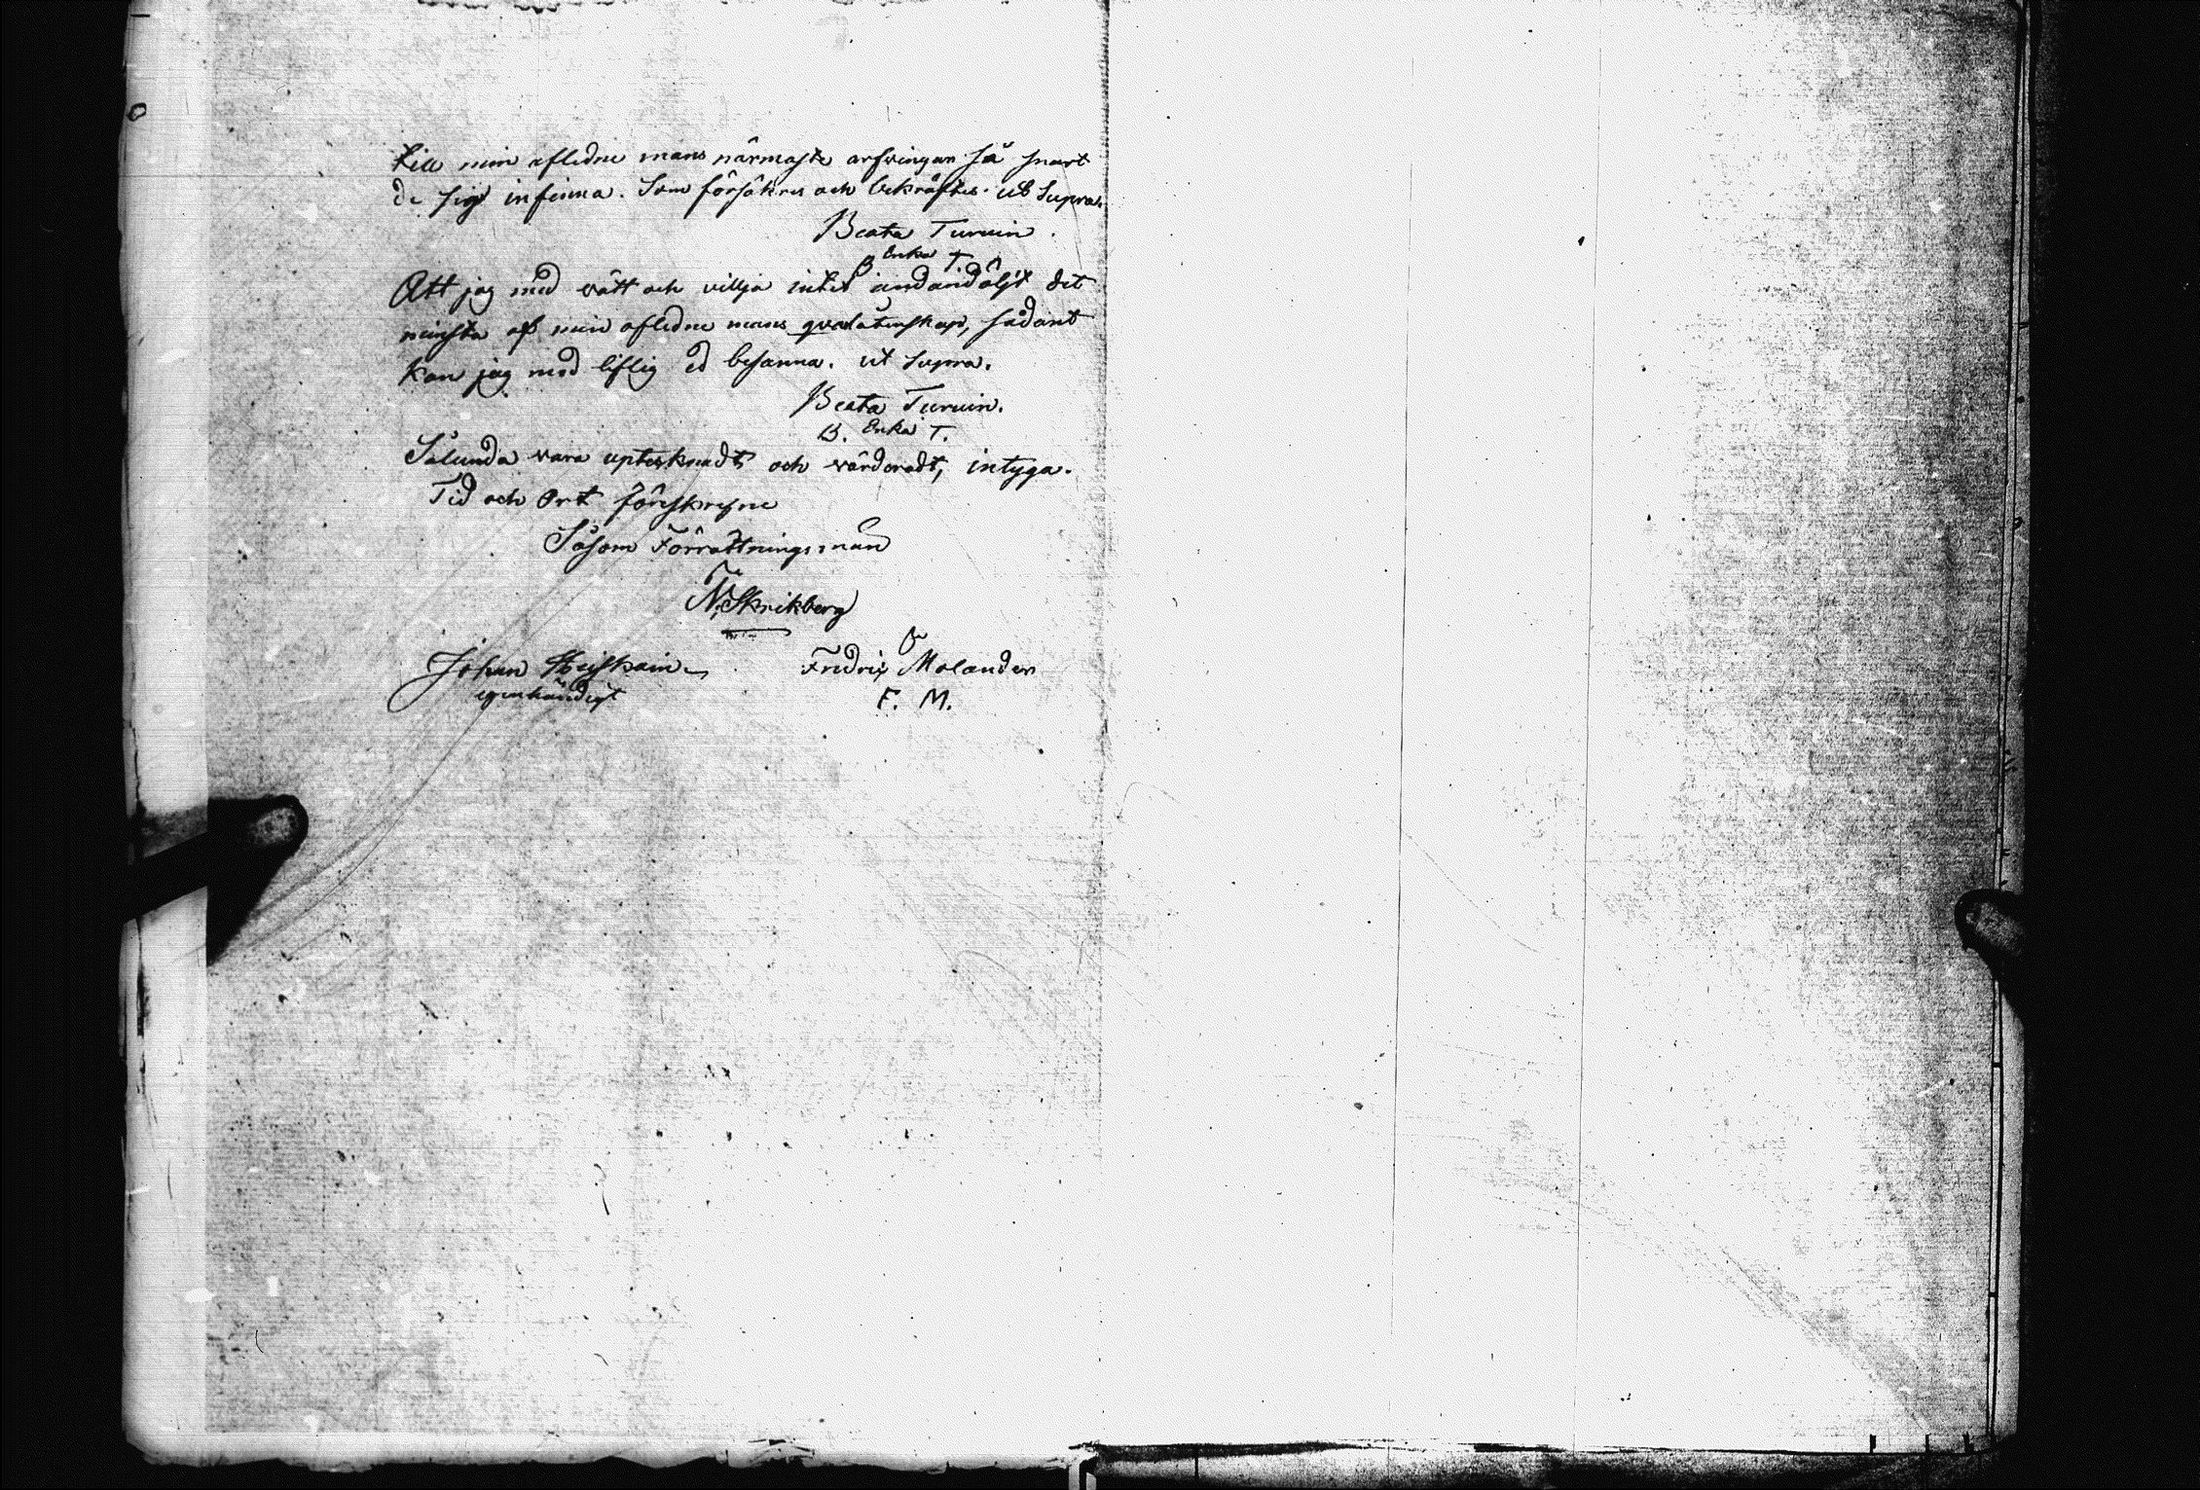 till min aflidne mans närmaste arfvingar så snart
de sig infinna. Som försäkras och bekräftes. ut Supra.
Beata Turuin.
B Enka T.
Att jag med vätt och vilja intet undandöljt det
minsta af min aflidne mans qvarlåtenskap, sådant
kan jag med liflig ed besanna. ut Supra.
Beata Turuin.
B. Enka T.
Sålunda vara uptecknadt och värderadt, intyga.
Tid och Ort förskrefne
Såsom Förrättningsman
N. Skrikberg
Johan Fredrix Molander
egenhändigt F. M.